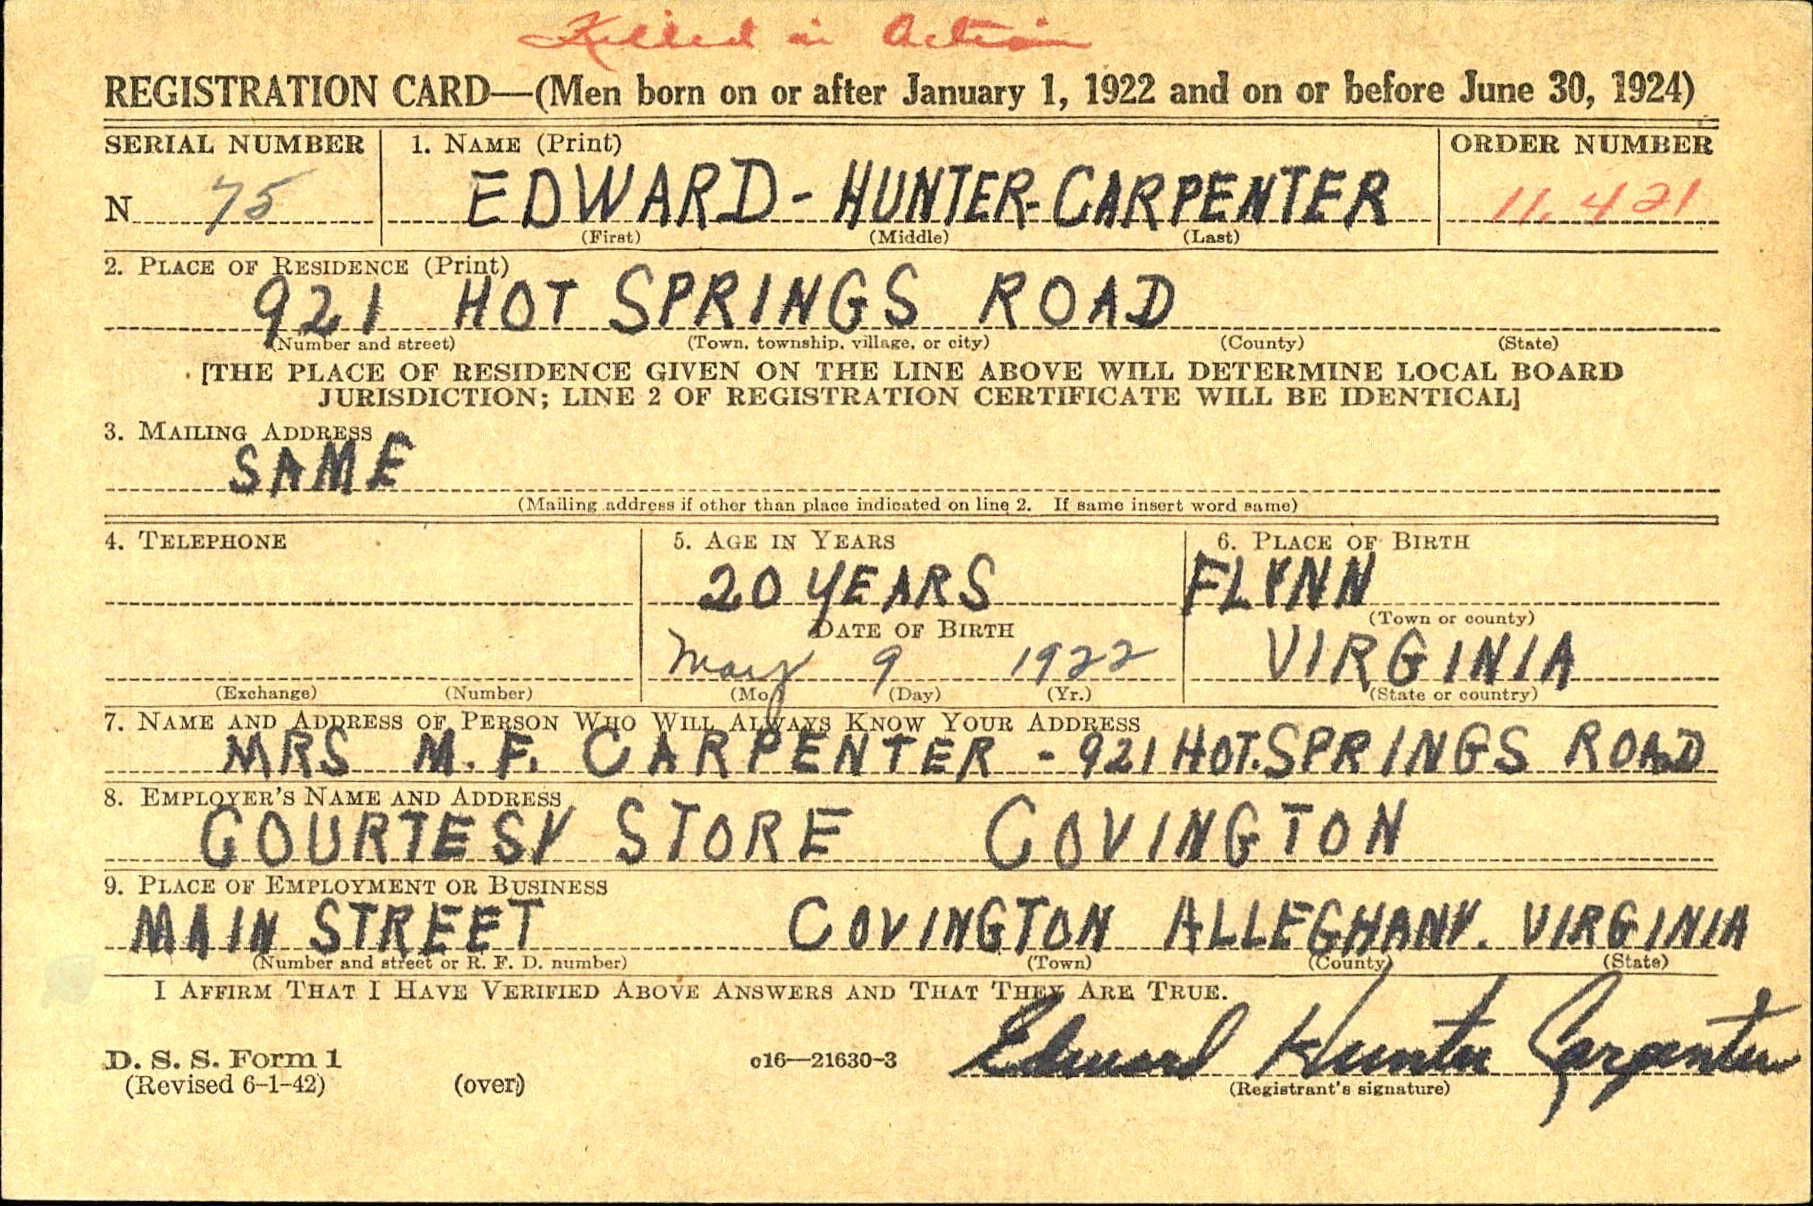 Killed in Action
REGISTRATION CARD—(Men born on or after January 1, 1922 and on or before June 30, 1924)
SERIAL NUMBER 1. NAME (Print) ORDER NUMBER
N 75 EDWARD - HUNTER - CARPENTER 11,421
(First) (Middle) (Last)
2. PLACE OF RESIDENCE (Print)
921 HOT SPRINGS ROAD
(Number and street) (Town, township, village, or city) (County) (State)
[THE PLACE OF RESIDENCE GIVEN ON THE LINE ABOVE WILL DETERMINE LOCAL BOARD
JURISDICTION; LINE 2 OF REGISTRATION CERTIFICATE WILL BE IDENTICAL]
3. MAILING ADDRESS
SAME
(Mailing address if other than place indicated on line 2. If same insert word same)
4. TELEPHONE 5. AGE IN YEARS 6. PLACE OF BIRTH
20 YEARS FLYNN
DATE OF BIRTH (Town or county)
May 9 1922 VIRGINIA
(Exchange) (Number) (Mo.) (Day) (Yr.) (State or country)
7. NAME AND ADDRESS OF PERSON WHO WILL ALWAYS KNOW YOUR ADDRESS
MRS M. F. CARPENTER - 921 HOT. SPRINGS ROAD
8. EMPLOYER'S NAME AND ADDRESS
COURTESY STORE COVINGTON
9. PLACE OF EMPLOYMENT OR BUSINESS
MAIN STREET COVINGTON ALLEGHANY. VIRGINIA
(Number and street or R. F. D. number) (Town) (County) (State)
I AFFIRM THAT I HAVE VERIFIED ABOVE ANSWERS AND THAT THEY ARE TRUE.
Edward Hunter Carpenter
D. S. S. Form 1 c16—21630-3
(Revised 6-1-42) (over) (Registrant's signature)